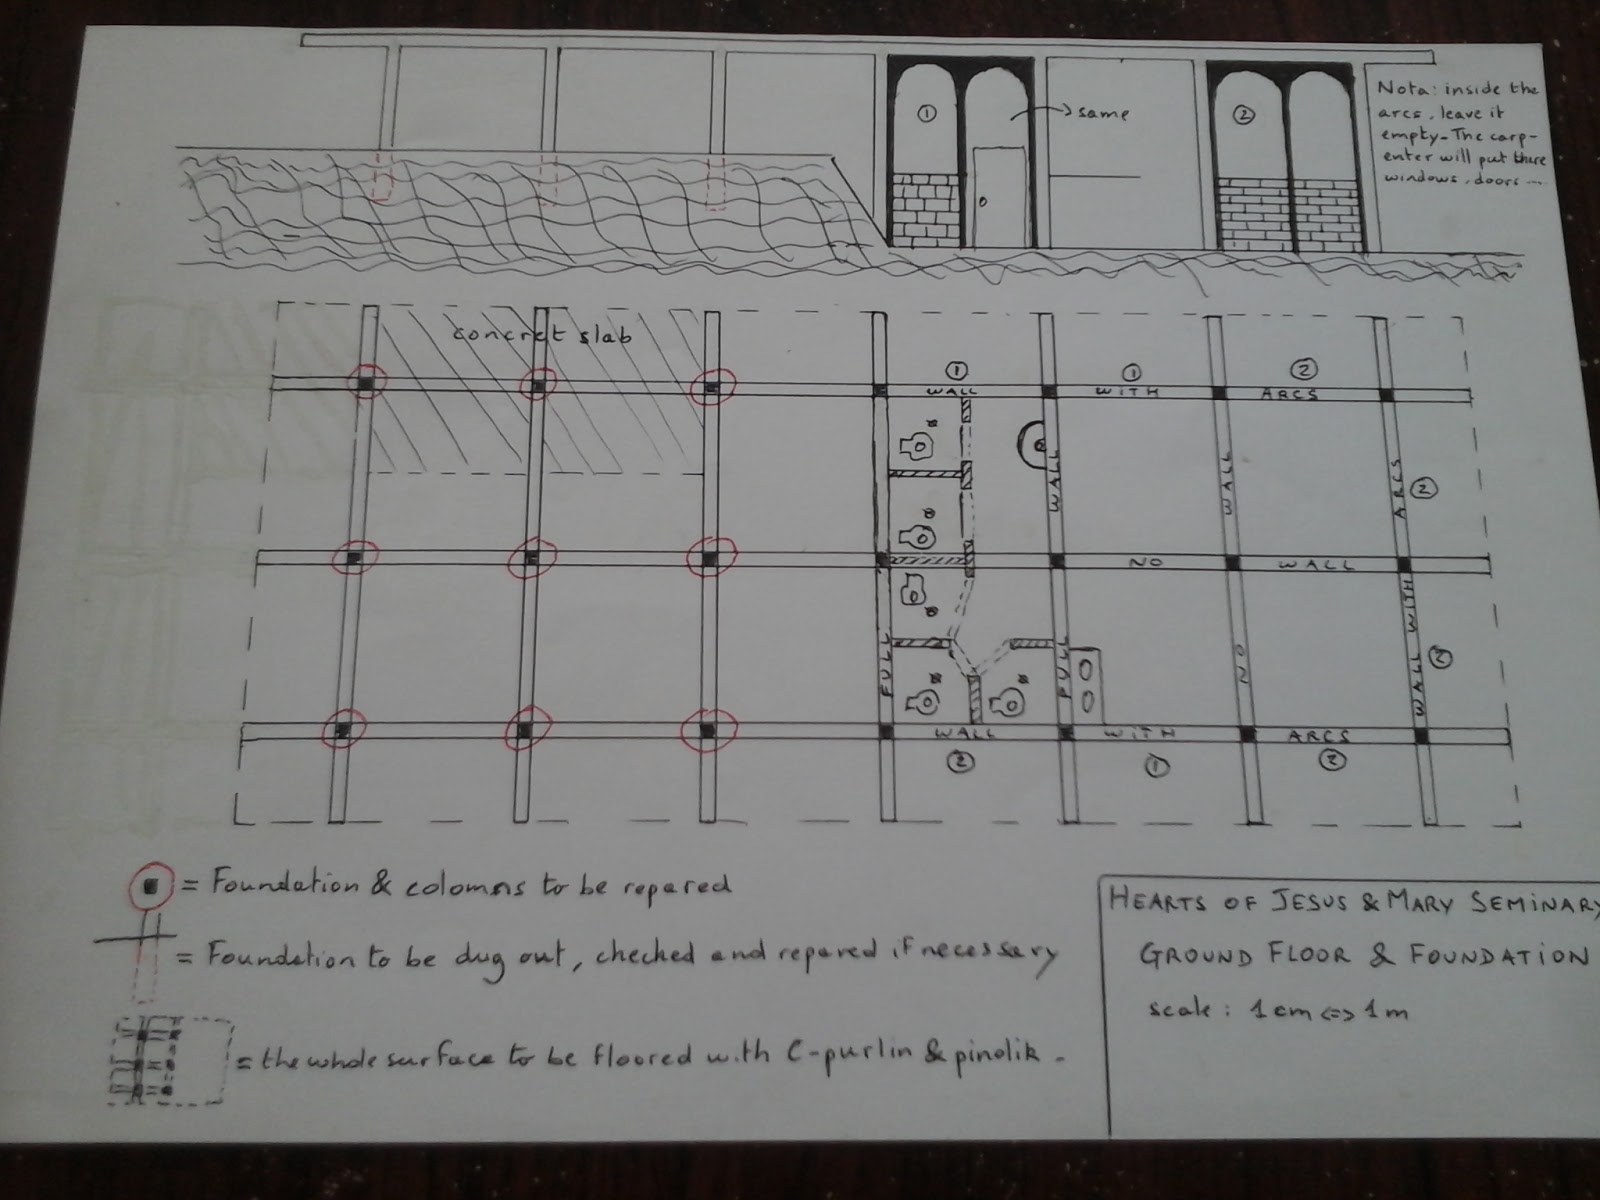 ① → same ②
Nota: inside the
arcs, leave it
empty - The carp-
enter will put there
windows, doors ...
concret slab
① ① ②
WALL WITH ARCS
WALL
WALL
ARCS ②
NO WALL
FULL
FULL
NO
WALL WITH ②
WALL WITH ARCS
② ① ②
= Foundation & colomns to be repared
= Foundation to be dug out, checked and repared if necessary
= the whole surface to be floored with C-purlin & pinolik -
HEARTS OF JESUS & MARY SEMINARY
GROUND FLOOR & FOUNDATION
scale : 1 cm <=> 1 m